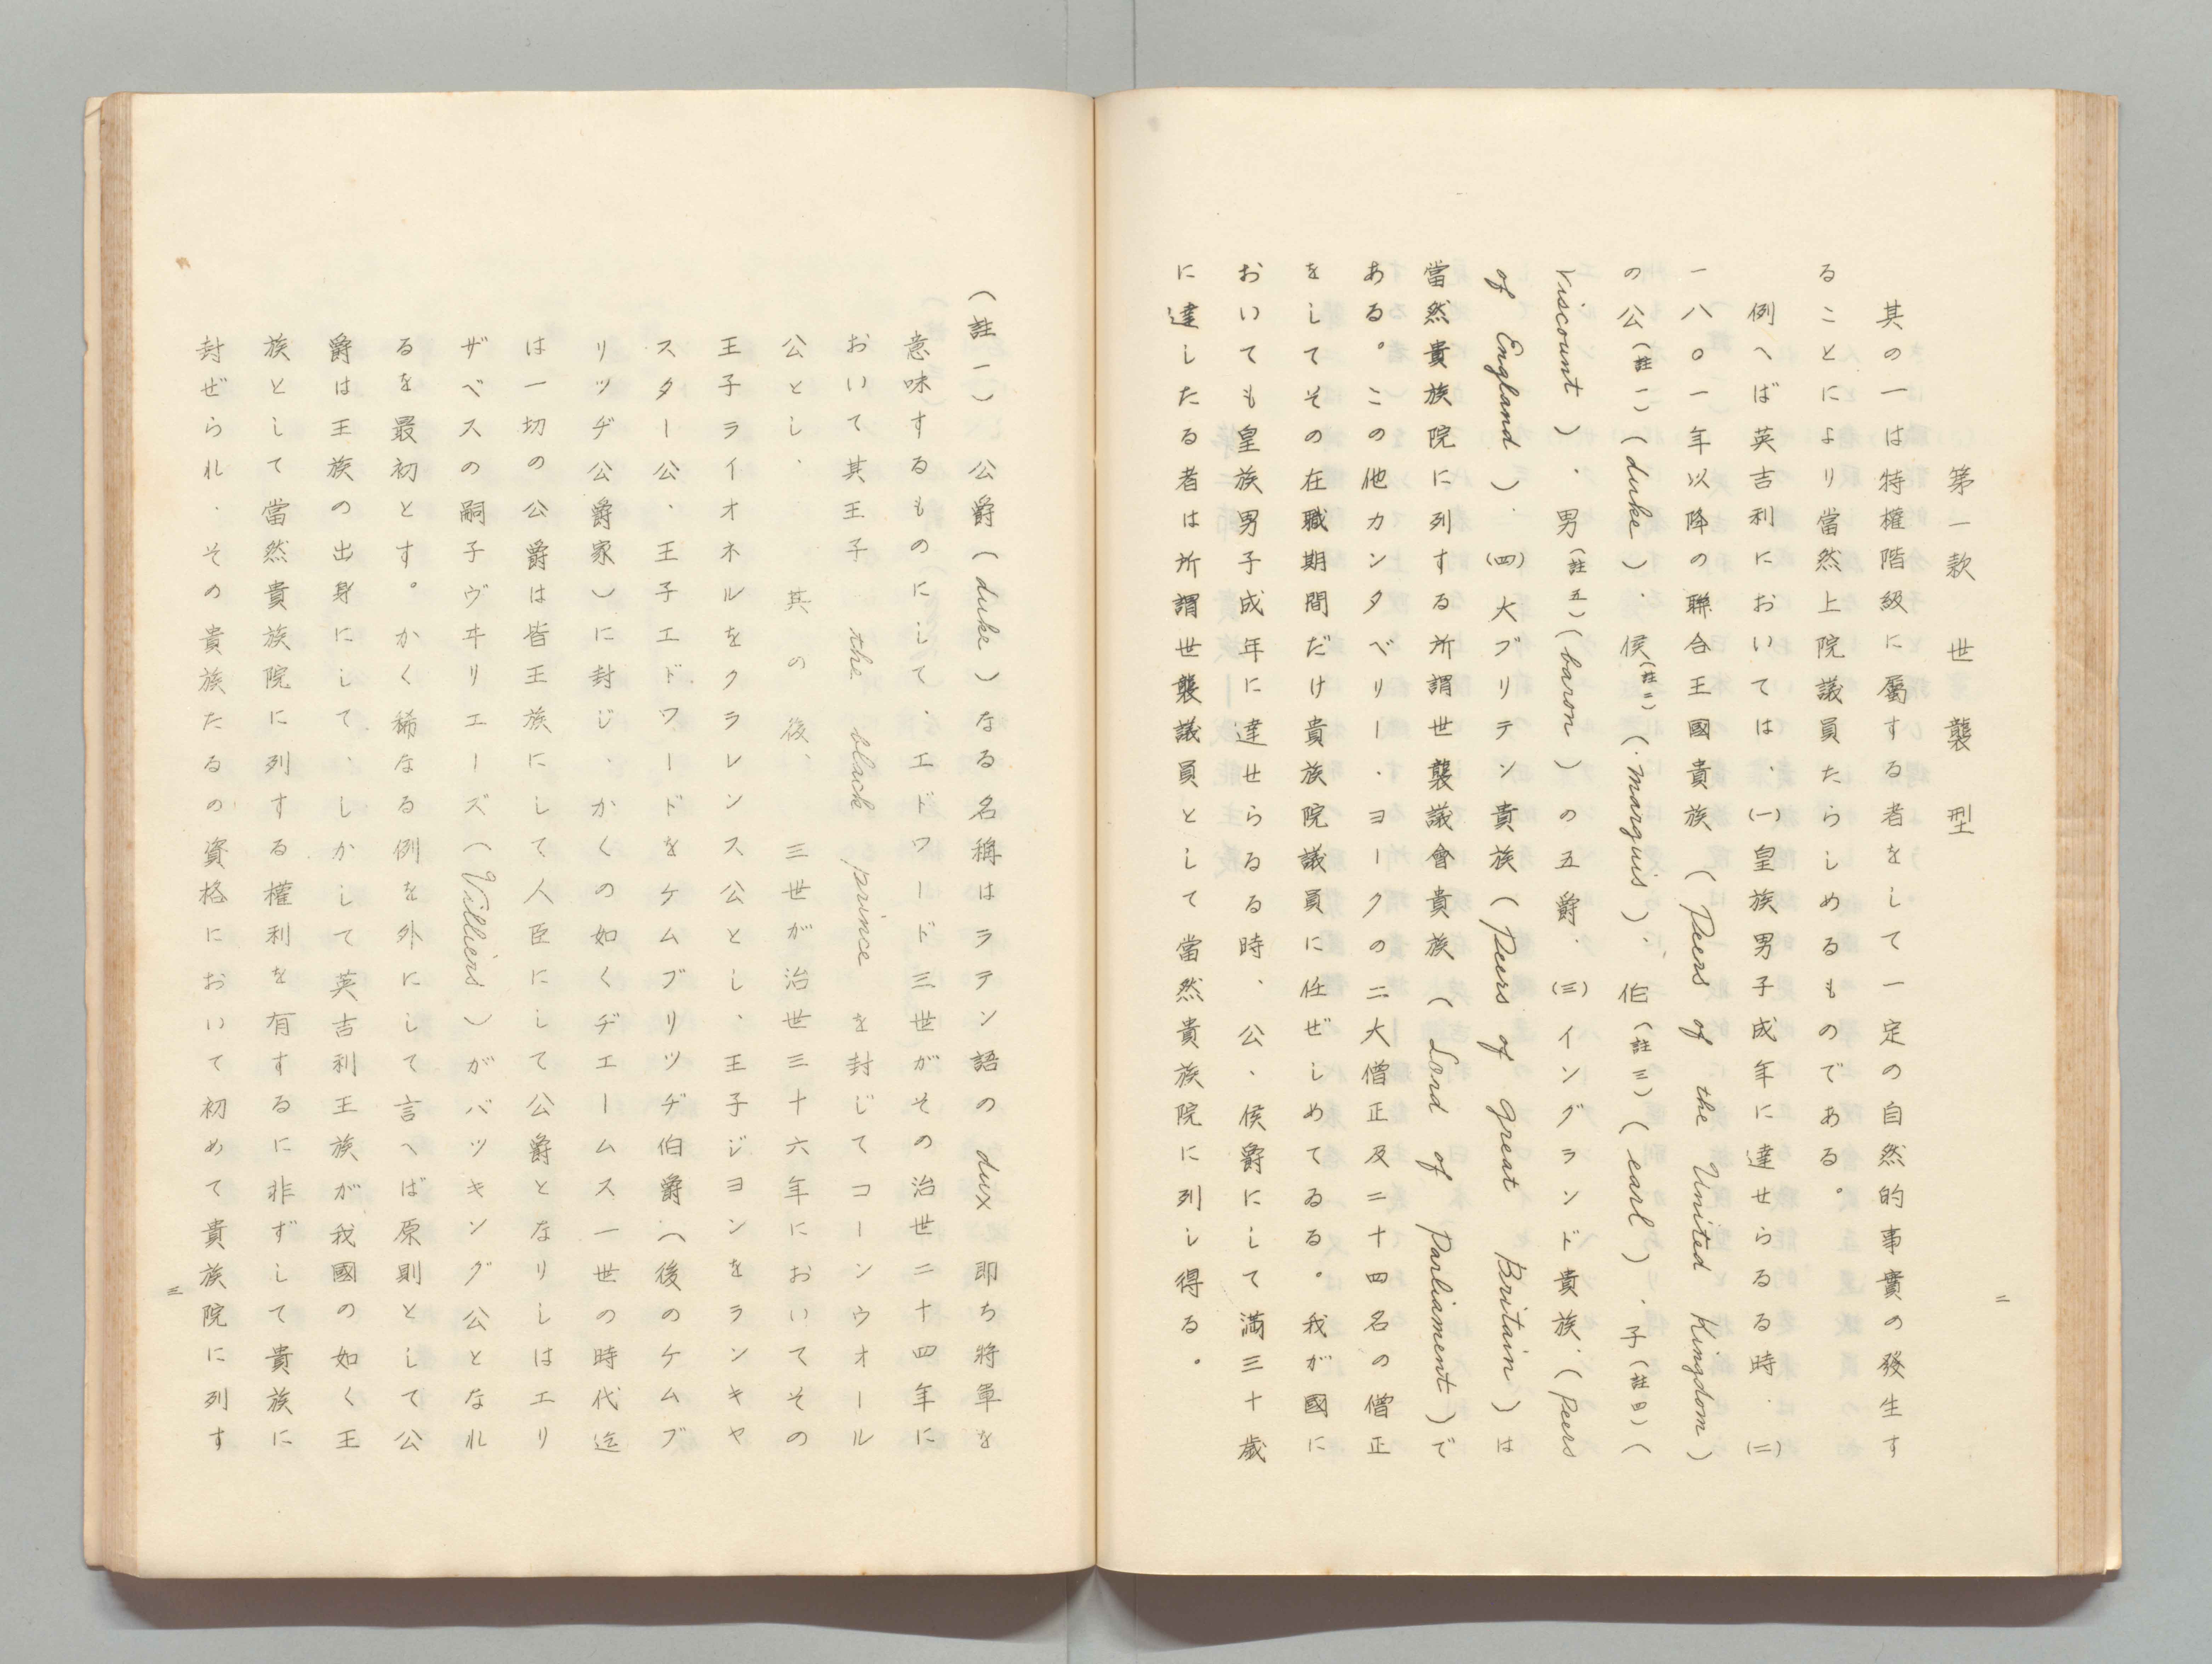 二
第一款　世襲型
其の一は特權階級に屬する者をして一定の自然的事實の發生す
ることにより當然上院議員たらしめるものである。
例へば英吉利においては、(一)皇族男子成年に達せらるる時、(二)
一八〇一年以降の聯合王國貴族（Peers of the United Kingdom）
の公（註一）（duke）、侯（註二）（marquis）、伯（註三）（earl）、子（註四）（
Viscount）、男（註五）（baron）の五爵、(三)イングランド貴族（Peers
of England）、(四)大ブリテン貴族（Peers of great Britain）は
當然貴族院に列する所謂世襲議會貴族（Lord of Parliament）で
ある。この他カンタベリー、ヨークの二大僧正及二十四名の僧正
をしてその在職期間だけ貴族院議員に任ぜしめてゐる。我が國に
おいても皇族男子成年に達せらるる時、公、侯爵にして滿三十歲
に達したる者は所謂世襲議員として當然貴族院に列し得る。
（註一）公爵（duke）なる名稱はラテン語の dux 即ち將軍を
意味するものにして、エドワード三世がその治世二十四年に
おいて其王子 the black prince を封じてコーンウオール
公とし、其の後、三世が治世三十六年においてその
王子ライオネルをクラレンス公とし、王子ジヨンをランキヤ
スター公、王子エドワードをケムブリツヂ伯爵（後のケムブ
リツヂ公爵家）に封じ、かくの如くヂエームス一世の時代迄
は一切の公爵は皆王族にして人臣にして公爵となりしはエリ
ザベスの嗣子ヴヰリエーズ（Villiers）がバツキング公となれ
るを最初とす。かく稀なる例を外にして言へば原則として公
爵は王族の出身にして、しかして英吉利王族が我國の如く王
族として當然貴族院に列する權利を有するに非ずして貴族に
封ぜられ、その貴族たるの資格において初めて貴族院に列す
三